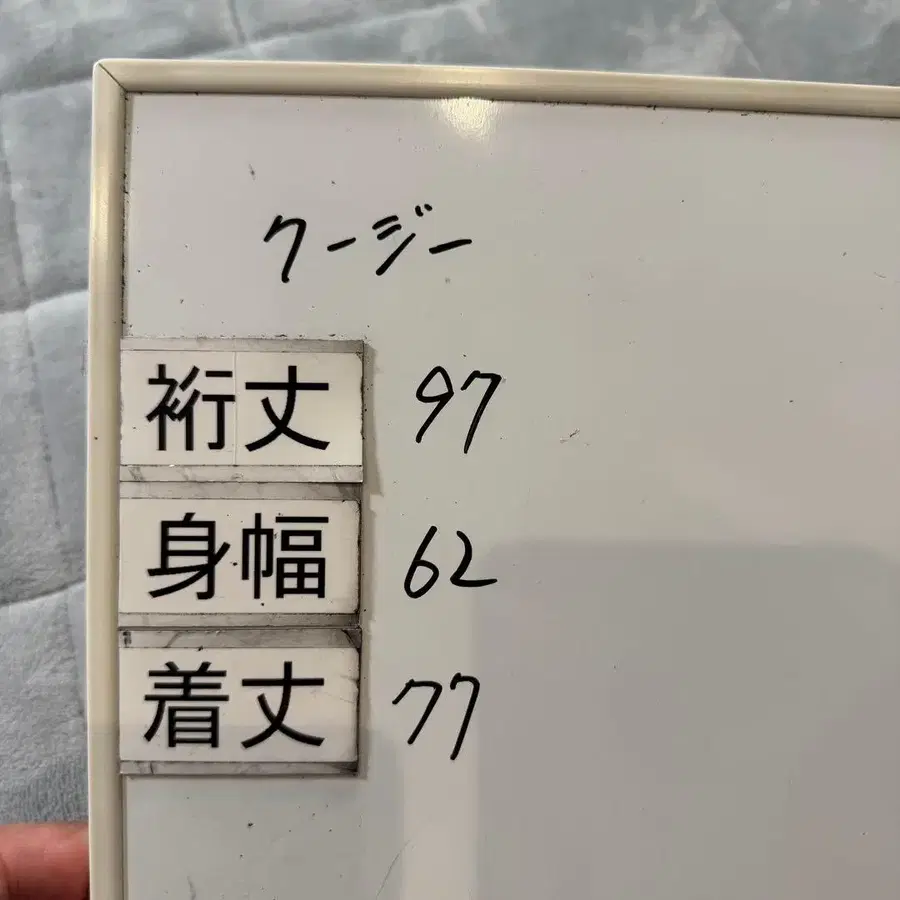 クージー
裄丈 97
身幅 62
着丈 77